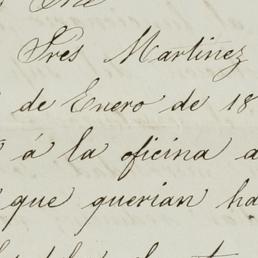 Tres Martinez
de Enero de 18
á la oficina a
que querian ha